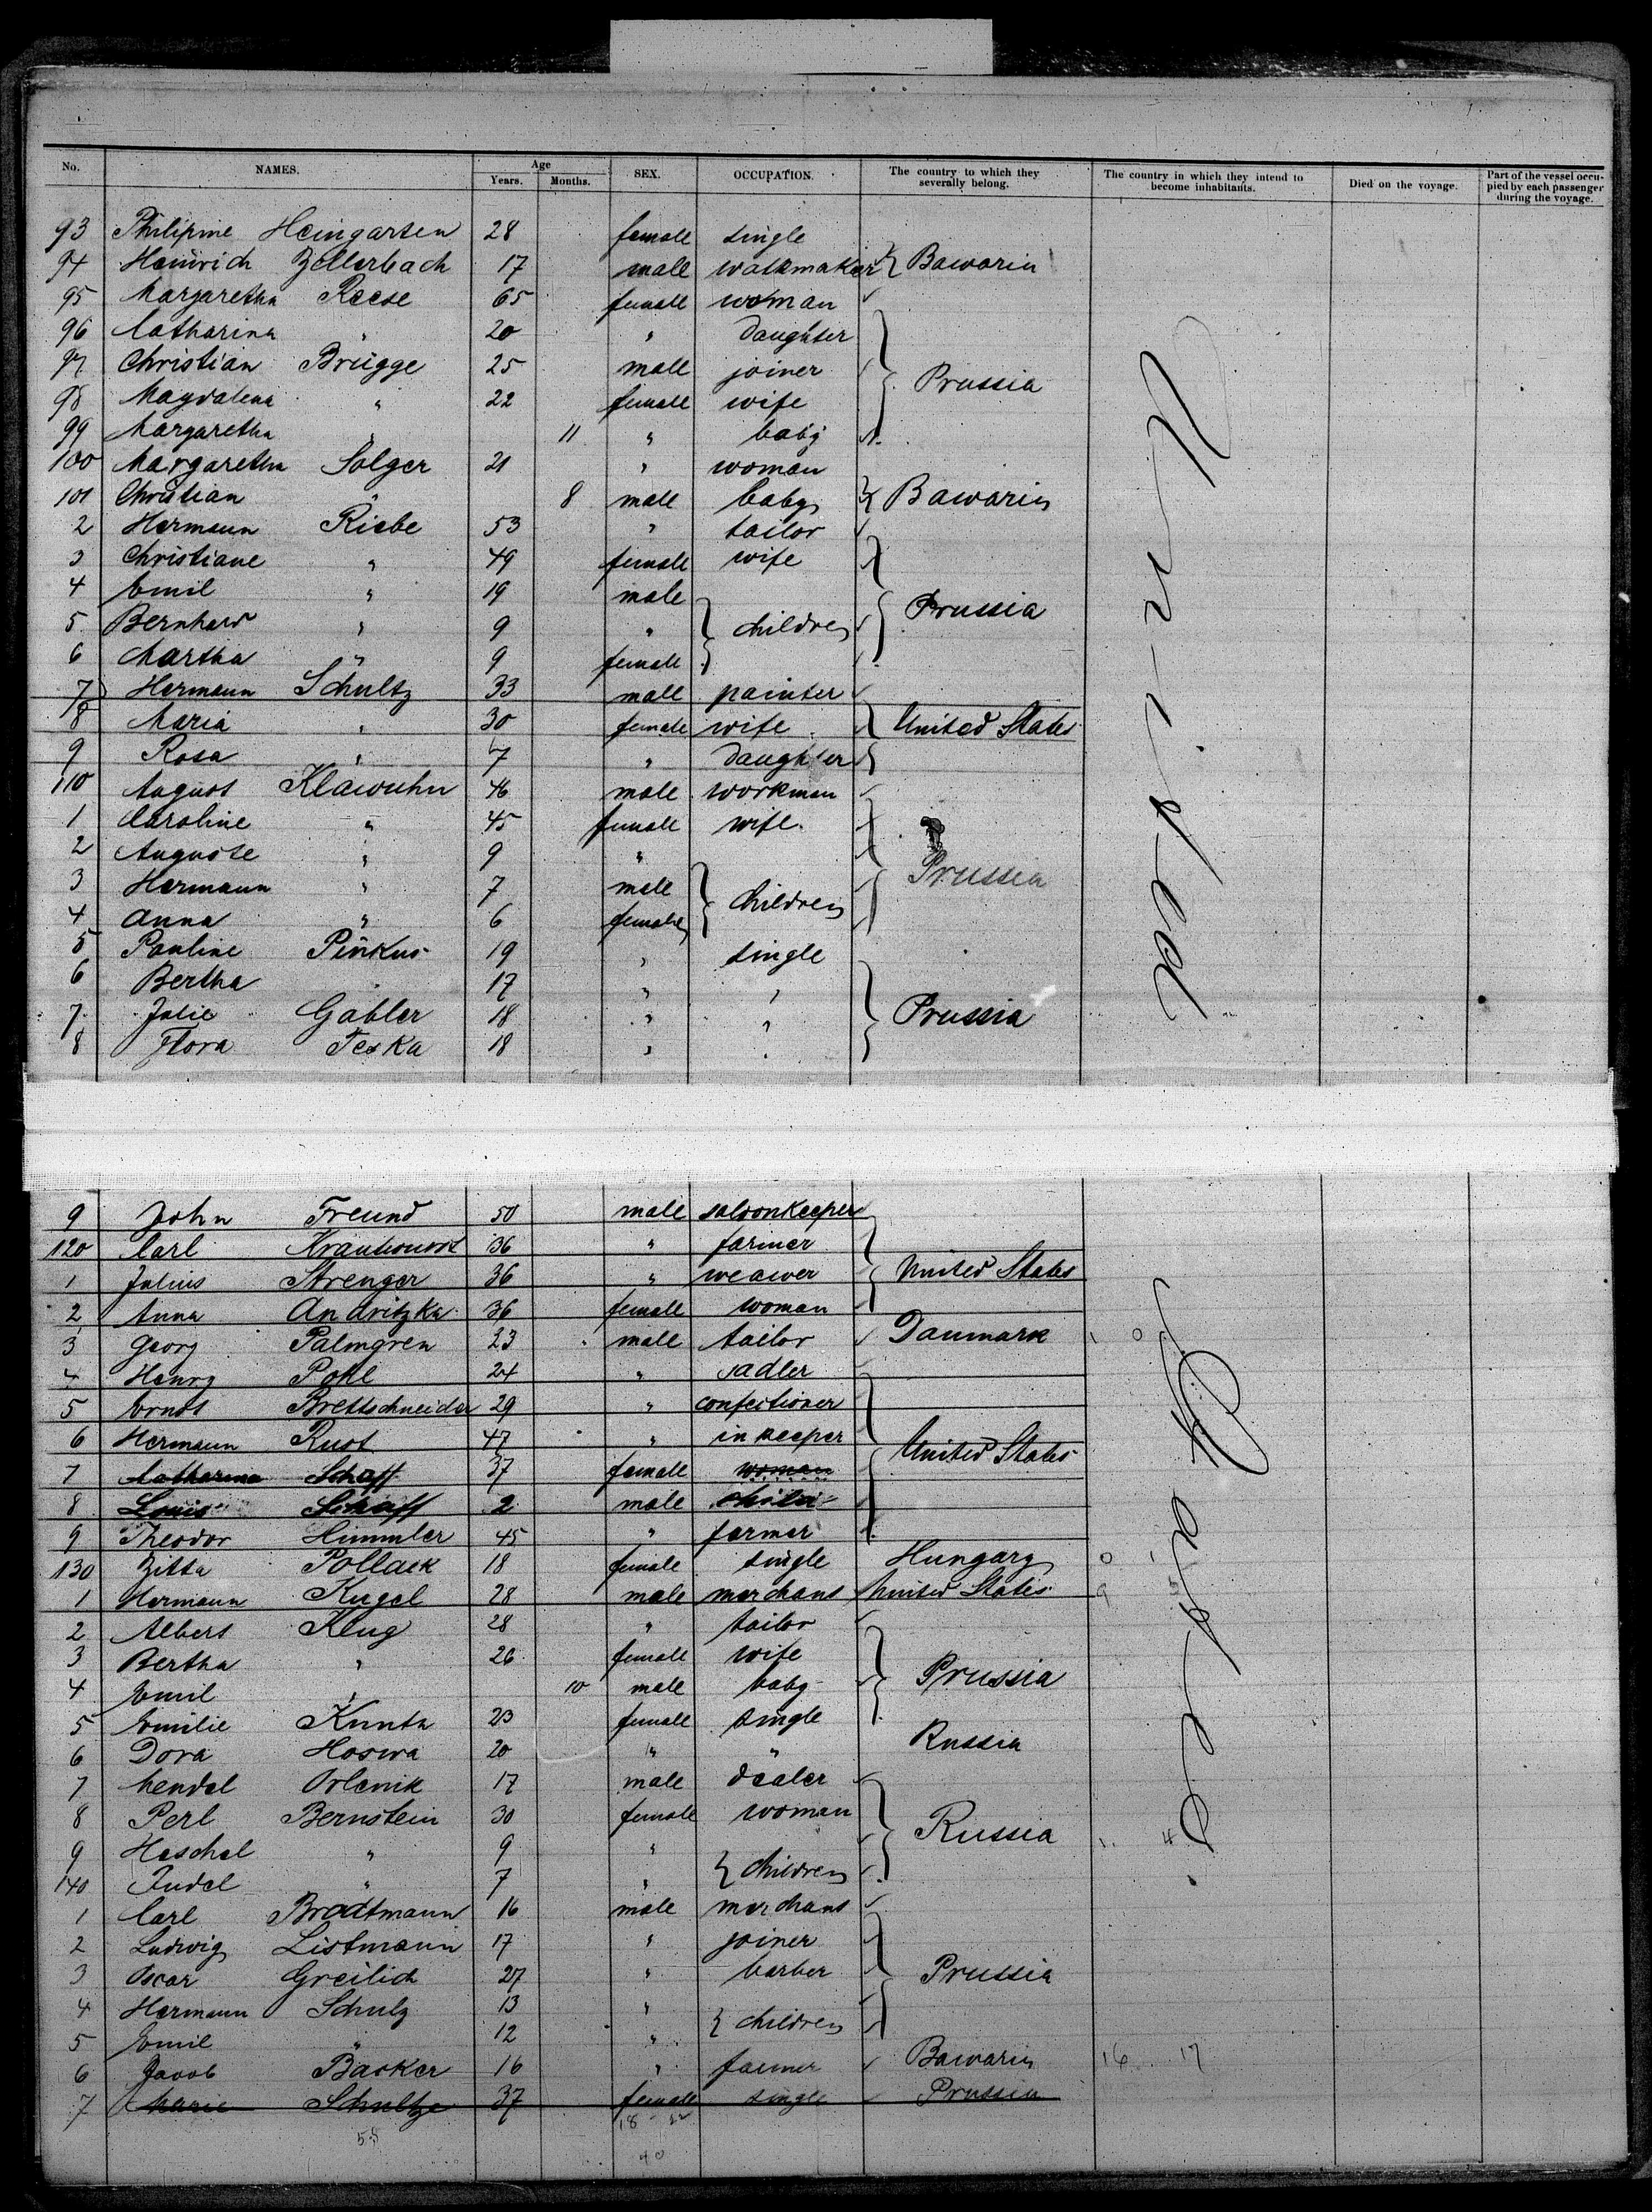 No. NAMES. Age Years. Months. SEX. OCCUPATION. The country to which they severally belong. The country in which they intend to become inhabitants. Died on the voyage. Part of the vessel occupied by each passenger during the voyage.
93 Philipine Heingarten 28 female single
94 Heinrich Zellerbach 17 male watkmaker } Bawaria
95 Margaretha Reese 65 female woman
96 Catharina " 20 " daughter
97 Christian Brügge 25 male joiner } Prussia
98 Magdalena " 22 female wife
99 Margaretha " 11 " baby
100 Margaretha Solger 21 " woman
101 Christian " 8 male baby } Bawaria
2 Hermann Riebe 53 " tailor
3 Christiane " 49 female wife
4 Emil " 19 male
5 Bernhard " 9 " } children } Prussia
6 Martha " 9 female
7 Hermann Schultz 33 male painter
8 Maria " 30 female wife } United States
9 Rosa " 7 " daughter
110 August Klawuhn 46 male workman
1 Caroline " 45 female wife
2 Auguste " 9 "
3 Hermann " 7 male } children } Prussia
4 Anna " 6 female
5 Pauline Pinkus 19 " single
6 Bertha " 17 " "
7 Julie Gabler 18 " " } Prussia
8 Flora Teska 18 " "
9 John Freund 50 male saloonkeeper
120 Carl 36 " farmer
1 Julius Strenger 36 " weawer } United States
2 Anna Andritzka 36 female woman
3 Georg Palmgren 23 male tailor Danmark
4 Henry Pohl 24 " sadler
5 Ernst Brettschneider 29 " confectioner
6 Hermann Rust 47 " inkeeper } United States
7 Catharina Schaff 37 female woman
8 Louis Schaff 2 male child
9 Theodor Himmler 45 " farmer
130 Zitta Pollack 18 female single Hungary
1 Hermann Kugel 28 male merchant United States
2 Albert Klug 28 " tailor
3 Bertha " 26 female wife
4 Emil " 10 male baby } Prussia
5 Emilie Kunth 23 female single
6 Dora Hoswa 20 " " Russia
7 Mendel Orlenik 17 male dealer
8 Perl Bernstein 30 female woman } Russia
9 Heschel " 9 " } children
140 Judel " 7 "
1 Carl Brodtmann 16 male merchant
2 Ludwig Listmann 17 " joiner
3 Oscar Greilich 27 " barber } Prussia
4 Hermann Schulz 13 " } children
5 Emil " 12 "
6 Jacob Backer 16 " farmer Bawaria 16 17
7 Marie Schultze 37 female single Prussia